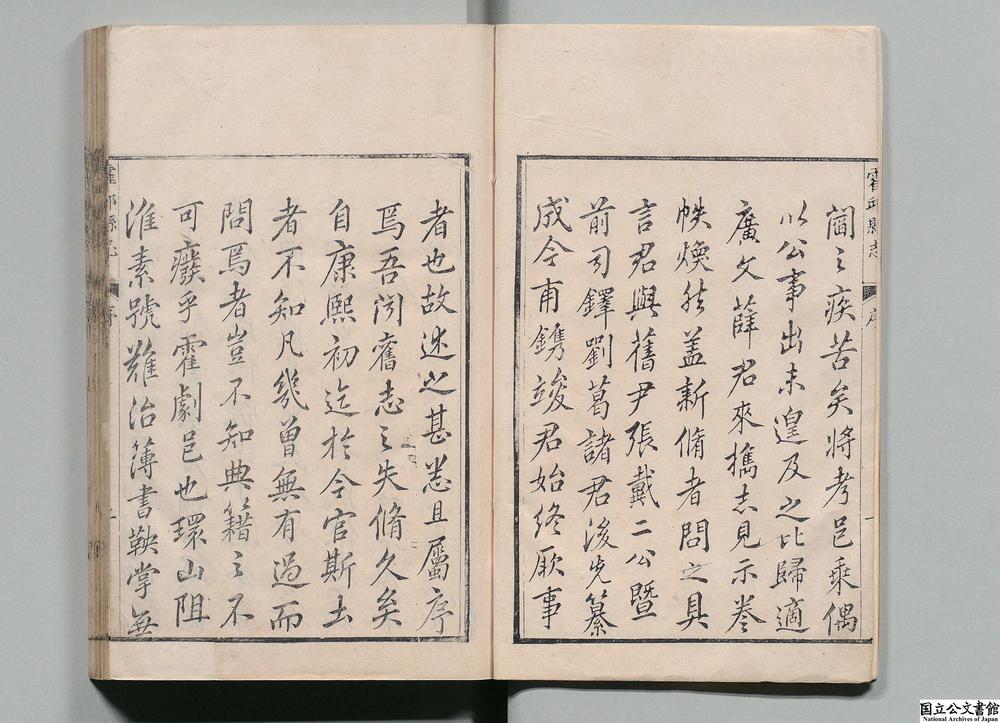 霍邱縣志
序
一
閭之疾苦矣將考邑乘偶
以公事出未遑及之比歸適
廣文薛君來攜志見示卷
帙煥然蓋新脩者問之具
言君與舊尹張戴二公暨
前司鐸劉葛諸君後先纂
成今甫鐫竣君始終厥事
者也故述之甚悉且屬序
焉吾聞舊志之失脩久矣
自康熙初迄於今官斯土
者不知凡幾曾無有過而
問焉者豈不知典籍之不
可癈乎霍劇邑也環山阻
淮素號難治簿書鞅掌無
霍邱縣志
序
二
国立公文書館
National Archives of Japan